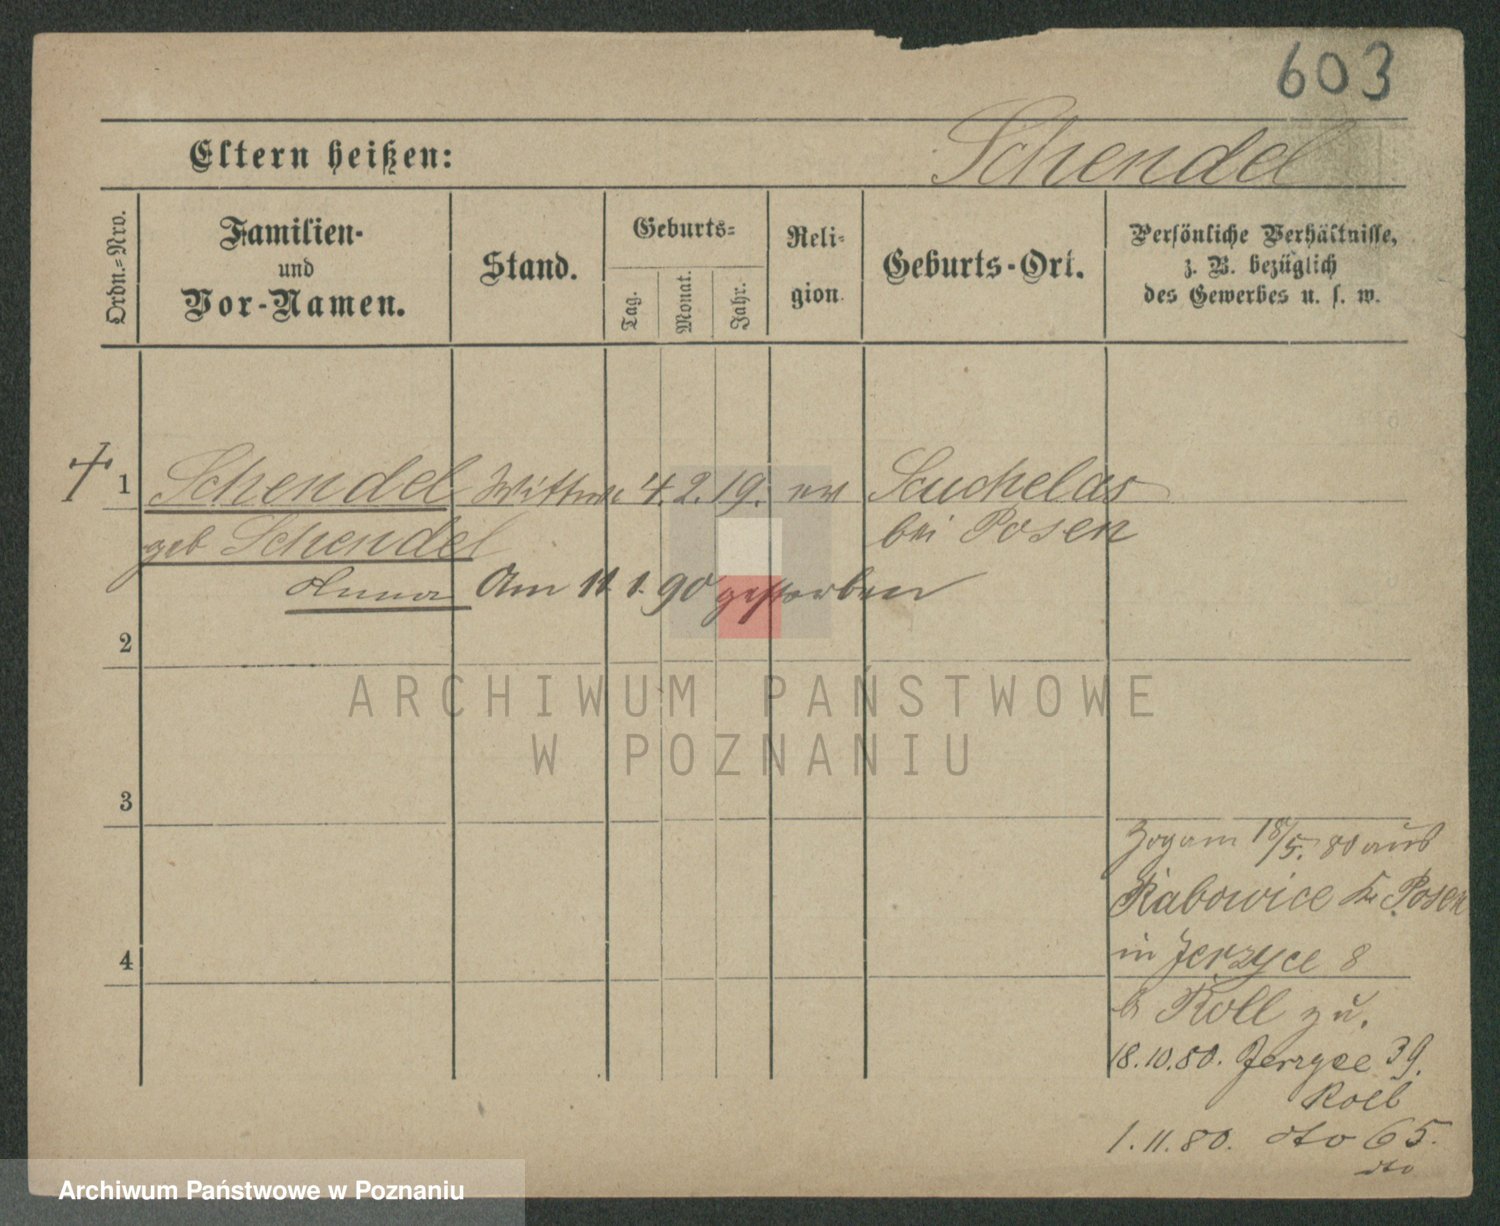 603
Eltern heißen:
Schendel
Ordn.=Nro.
Familien-
und
Vor-Namen.
Stand.
Geburts=
Tag.
Monat.
Jahr.
Reli-
gion.
Geburts-Ort.
Persönliche Verhältnisse,
z. B. bezüglich
des Gewerbes u. s. w.
1 Schendel Wittwe 4. 2. 19. ev Suchelas
geb Schendel bei Posen
Anna Am 11. 1. 90 gestorben
2
ARCHIWUM PAŃSTWOWE
W POZNANIU
3
Zog am 18/5. 80 aus
Rabowice Kr. Posen
4
in Jerzyce 8
b Roll zu.
18.10.80. Jerzyce 39.
Roll
1.11.80. dto 65.
dto
Archiwum Państwowe w Poznaniu